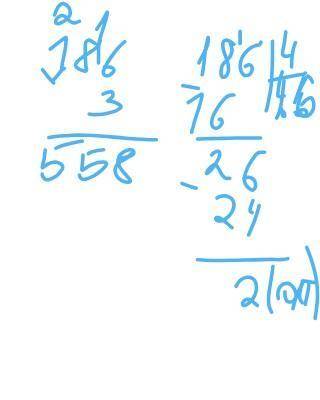 2 1
186
3
558
186 | 4
- 16 | 46
26
- 24
2 (ост)